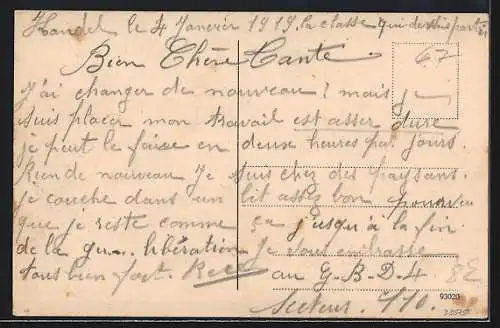 Handel le 4 Janvier 1919. la classe qui dervis partir
Bien Chère Tante. 67
J'ai changer de nouveau ? mais je
suis placer mon travail est asser dure
je peut le faire en deux heures par jours.
Rien de nouveau Je suis chez des paysans.
je couche dans un lit assez bon pourvu
que je reste comme ça j'usqu'à la fin
de la gu... libération Je vous embrasse
tous bien fort. au G-B-D-4 8E
93020
Secteur. 110.